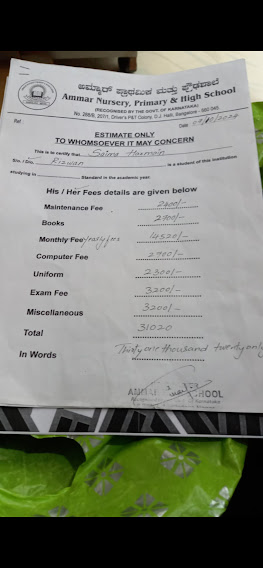 ಅಮ್ಮಾರ್ ಪ್ರಾಥಮಿಕ ಮತ್ತು ಪ್ರೌಢಶಾಲೆ
Ammar Nursery, Primary & High School
(RECOGNISED BY THE GOVT. OF KARNATAKA)
D.J. Halli, Bangalore - 560 045.
Ref.
Date
ESTIMATE ONLY
TO WHOMSOEVER IT MAY CONCERN
This is to certify that Saima
S/o. / D/o. Rizwan is a student of this institution
studying in Standard in the academic year
His / Her Fees details are given below
Maintenance Fee
Books 2700/-
Monthly Fee/yearly fees 14520/-
Computer Fee
Uniform 2300/-
Exam Fee 3200/-
Miscellaneous 3200/-
Total 31020
In Words Thirty one thousand twenty only